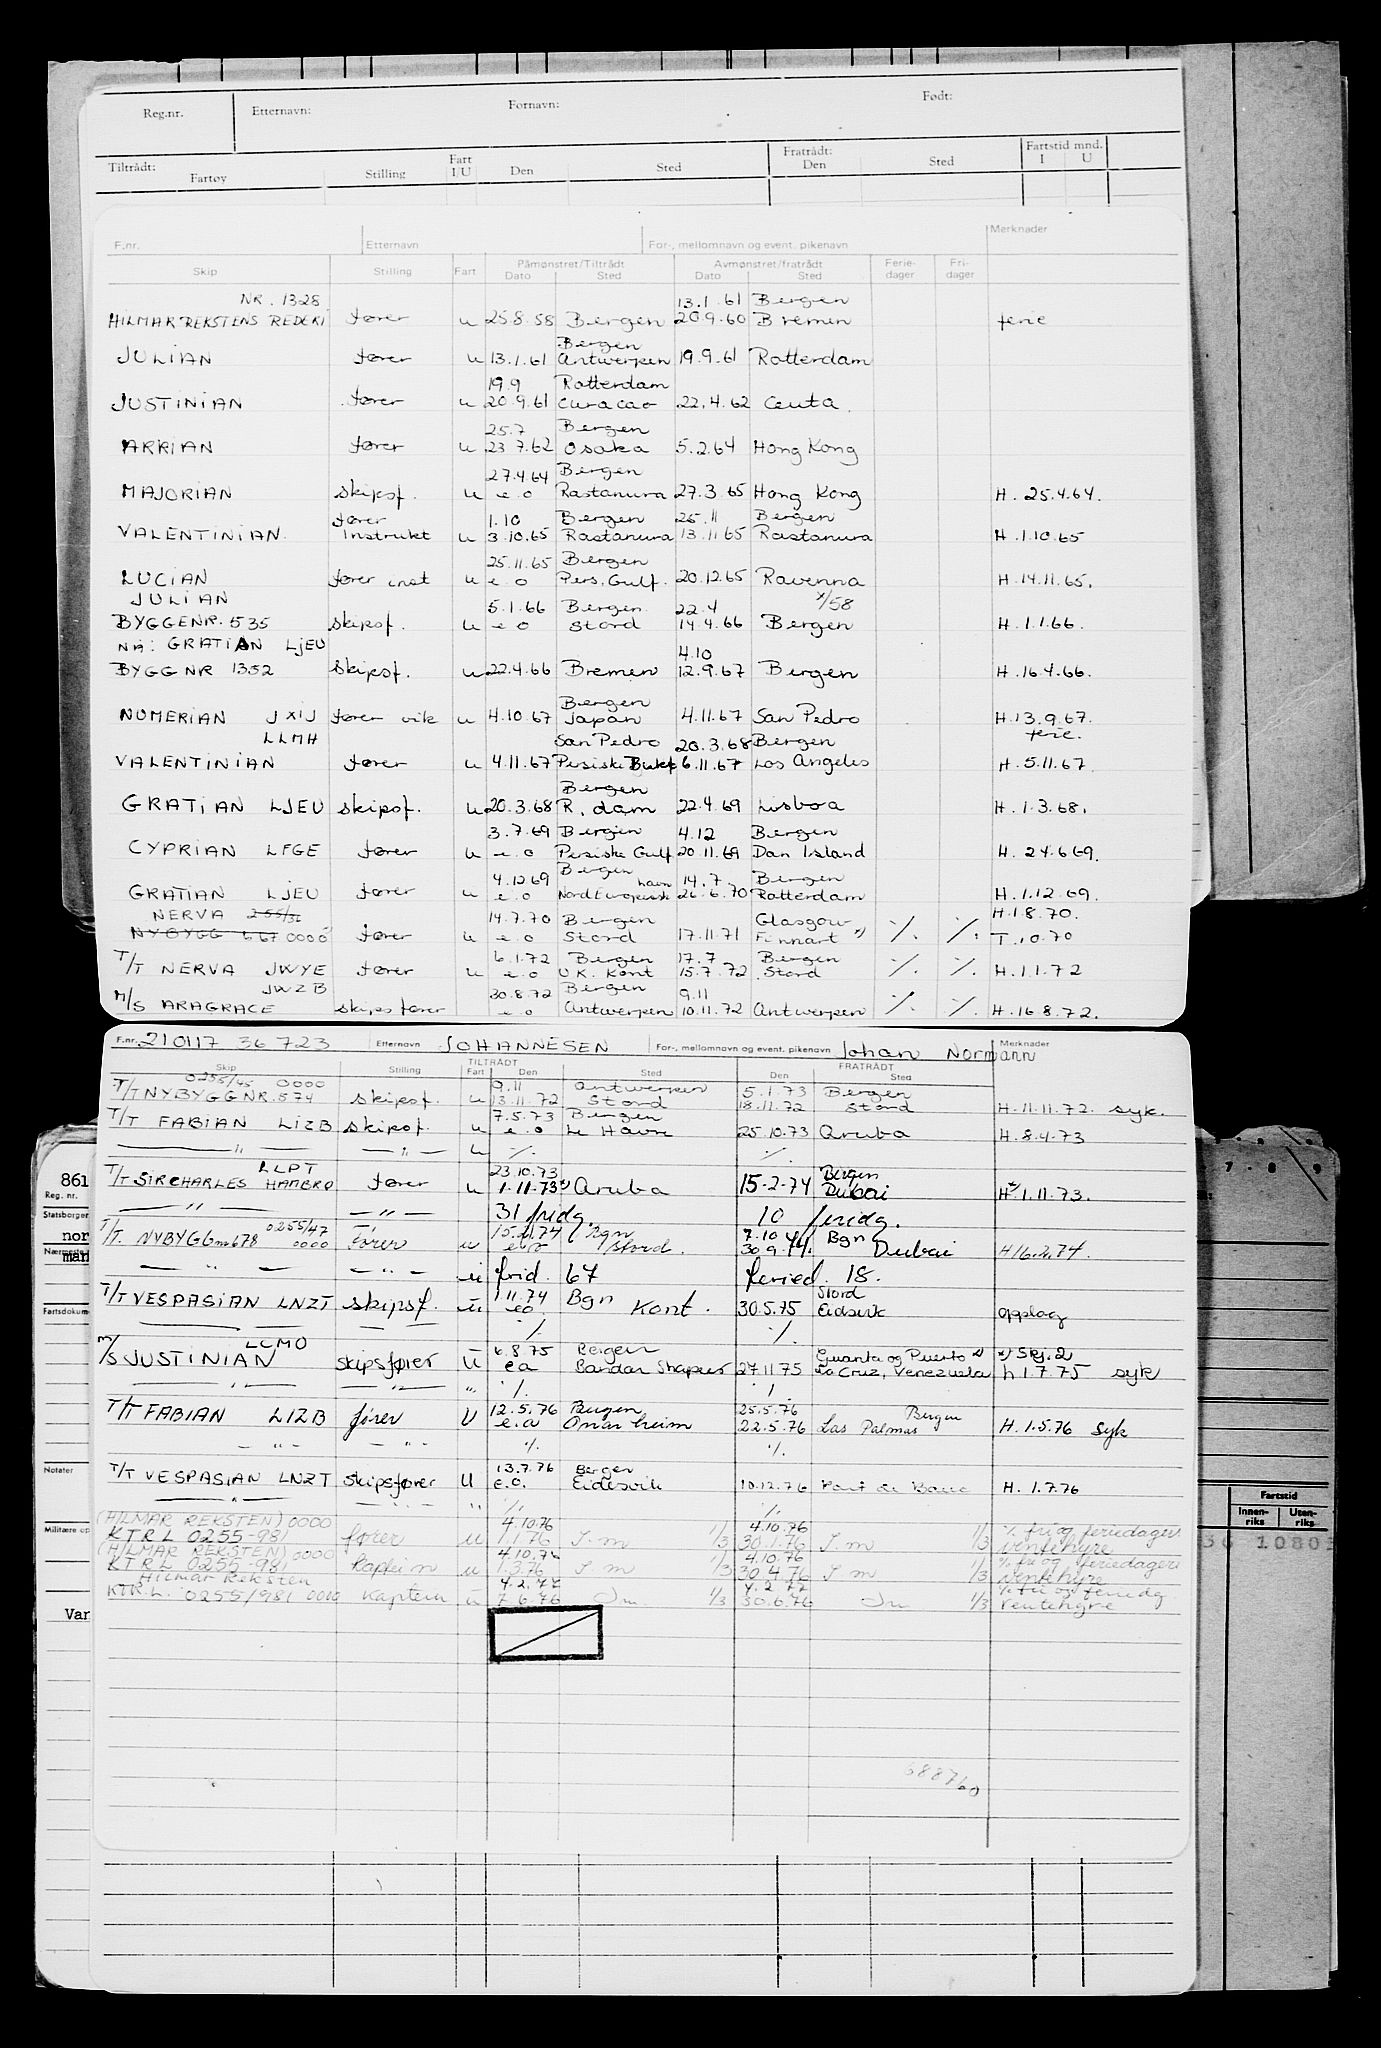 Reg.nr. Etternavn: Fornavn: Født:
Tiltrådt: Fart Fratrådt: Fartstid mnd.
Fartøy Stilling I/U Den Sted Den Sted I U
F.nr. Etternavn For-, mellomnavn og event. pikenavn Merknader
Påmønstret/Tiltrådt Avmønstret/fratrådt Ferie- Fri-
Skip Stilling Fart Dato Sted Dato Sted dager dager
NR. 1328 13.1.61 Bergen
HILMAR REKSTENS REDERI fører u 25.8.58 Bergen 20.9.60 Bremen ferie
Bergen
JULIAN fører u 13.1.61 Antwerpen 19.9.61 Rotterdam
19.9 Rotterdam
JUSTINIAN fører u 20.9.61 Curacao 22.4.62 Ceuta.
25.7 Bergen
ARRIAN fører u 23 7.62 Osaka 5.2.64 Hong Kong
27.4.64 Bergen
MAJORIAN skipsf. u e.o Rastanura 27.3.65 Hong Kong H. 25.4.64.
fører 1.10 Bergen 25.11 Bergen
VALENTINIAN. Instrukt u 3.10.65 Rastanura 13.11 65 Rastanura H. 1.10.65
25.11.65 Bergen
LUCIAN fører inst u e.o Pers. Gulf. 20.12.65 Ravenna H.14.11.65.
JULIAN 5.1.66 Bergen. 22.4 x/58
BYGGENR. 535 skipsf. u e.o Stord 14.4.66 Bergen H.1.1.66.
NA: GRATIAN LJEU 4.10
BYGG NR 1352 skipsf. u 22.4.66 Bremen 12.9.67 Bergen H.16.4.66.
Bergen
NUMERIAN JXIJ fører vik u 4.10.67 Japan 4.11.67 San Pedro H.13.9.67.
LLMH San Pedro 20.3.68 Bergen ferie.
VALENTINIAN fører u 4.11.67 Persiske Bukt 6.11.67 Los Angeles H.5.11.67.
Bergen
GRATIAN LJEU skipsf. u 20.3.68 R. dam 22.4.69 Lisboa H.1.3.68.
3.7.69 Bergen 4.12 Bergen
CYPRIAN LFGE fører u e.o Persiske Gulf 20.11.69 Dan Island H. 24.6 69.
4.12 69 Bergen 14.7 Bergen
GRATIAN LJEU fører u e.o Nord Europeisk havn 26.6.70 Rotterdam H.1.12.69.
NERVA 255/36 14.7.70 Bergen Glasgow H.1.8.70.
NYBYGG 667 0000 fører u e.o Stord 17.11.71 Finnart x) ٪ ٪ T.10.70
6.1.72 Bergen 17.7 Bergen
T/T NERVA JWYE fører u e.o U.K. Kont 15.7.72 Stord ٪ ٪ H.1.1.72
JWZB 30.8.72 Bergen 9.11
M/S ARAGRACE skipsfører e.o Antwerpen 10.11.72 Antwerpen ٪ ٪ H.16 8.72.
F.nr. 210117 36 723 Etternavn JOHANNESEN For-, mellomnavn og event. pikenavn Johan Normann Merknader
TILTRÅDT FRATRÅDT
Skip Stilling Fart Den Sted Den Sted
0255/45 0000 9.11 Antwerpen 5.1.73 Bergen
T/T NYBYGG NR. 574 skipsf. u 13.11.72 Stord 18.11.72 Stord H.11.11.72. syk.
7.5.73 Bergen
T/T FABIAN LIZB skipsf. u e.o Le Havre 25.10.73 Aruba H.8.4.73
— " — — " — u ٪ ٪
LLPT 23.10.73 Bergen
T/T SIR CHARLES HAMBRO fører u 1.11.73 x) Aruba 15-2-74 Dubai H. 1.11.73.
— " — — " — 31 fridg. 10 feridg.
0255/47 15.2.74 Bgn 7.10 Bgn
T/T. NYBYGG nr 678 0000 Fører u e.o Stord. 30.9.74. Dubai H 16.2.74.
— " — — " — u frid. 67 feried. 18.
1.11.74 Bgn Stord
T/T VESPASIAN LNZT skipsf. u eo Kont. 30.5.75 Eidsvik opplag
٪ ٪
LCMO 6.8.75 Bergen Guanta og Puerto x) Skj. 2
M/S JUSTINIAN skipsfører U ea Bandar Shapur 27.11 75 La Cruz, Venezuela h 1.7.75 syk
— " — — " — " ٪ ٪
12.5.76 Bergen 25.5.76 Bergen
T/T FABIAN LIZB fører U e.o Omar heim 22.5.76 Las Palmas H.1.5.76 Syk
— " — — " — ٪ ٪
13.7.76 Bergen
T/T VESPASIAN LNZT skipsfører U e.o. Eidesvik 10.12.76 H. 1.7.76
— " — — " — " ٪ ٪
(HILMAR REKSTEN) 0000 4.10.76 4.10.76 ٪ fri og feriedager
KTRL 0255-981 fører u 1.1.76 I.m 1/3 30.1.76 I.m 1/3 Ventehyre
(HILMAR REKSTEN) 0000 4.10.76 4.10.76 ٪ fri og feriedager
KTRL 0255-981 Kaptein u 1.3.76 I.m 1/3 30.4.76 I.m 1/3 Ventehyre
Hilmar Reksten 4.2.77 4.2.77 ٪ fri og feriedg
KTR.L. 0255/981 0000 Kaptein u 7.6.76 Im 1/3 30.6.76 Im 1/3 Ventehyre
688760
861
Reg. nr.
Statsborger
nor
Nærmeste
mar
Fartsdokum
Notater
Militære op
Var
7 - 8 - 9
Fartstid
Innen- Uten-
riks riks
36 1080